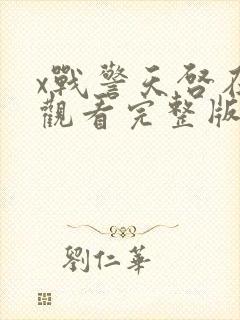 x戰警天啓在
觀看完整版
劉仁華